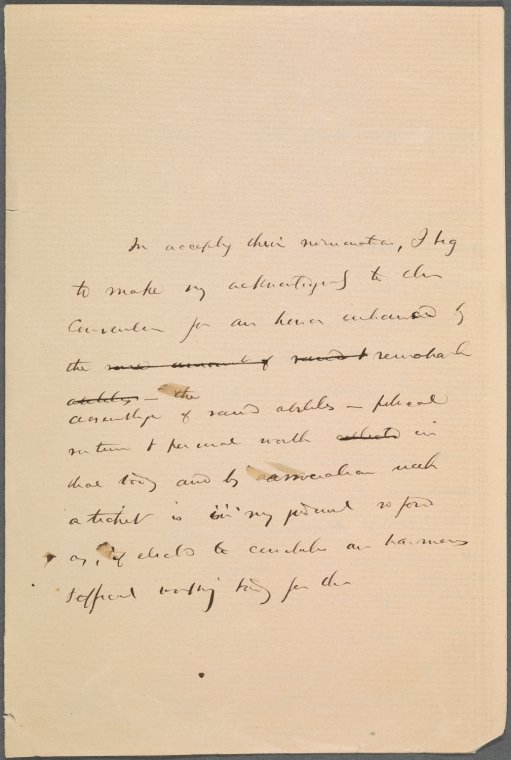 In accepting their nomination, I beg
to make my acknowledgments to the
Convention for an honor enhanced by
the rare amount of varied & remarkable
abilities — the
assemblage of varied abilities — political
& personal worth collected in
that body and by association with
a ticket is in my judgment so
as, if elected to constitute an harmonious
& efficient working body for the